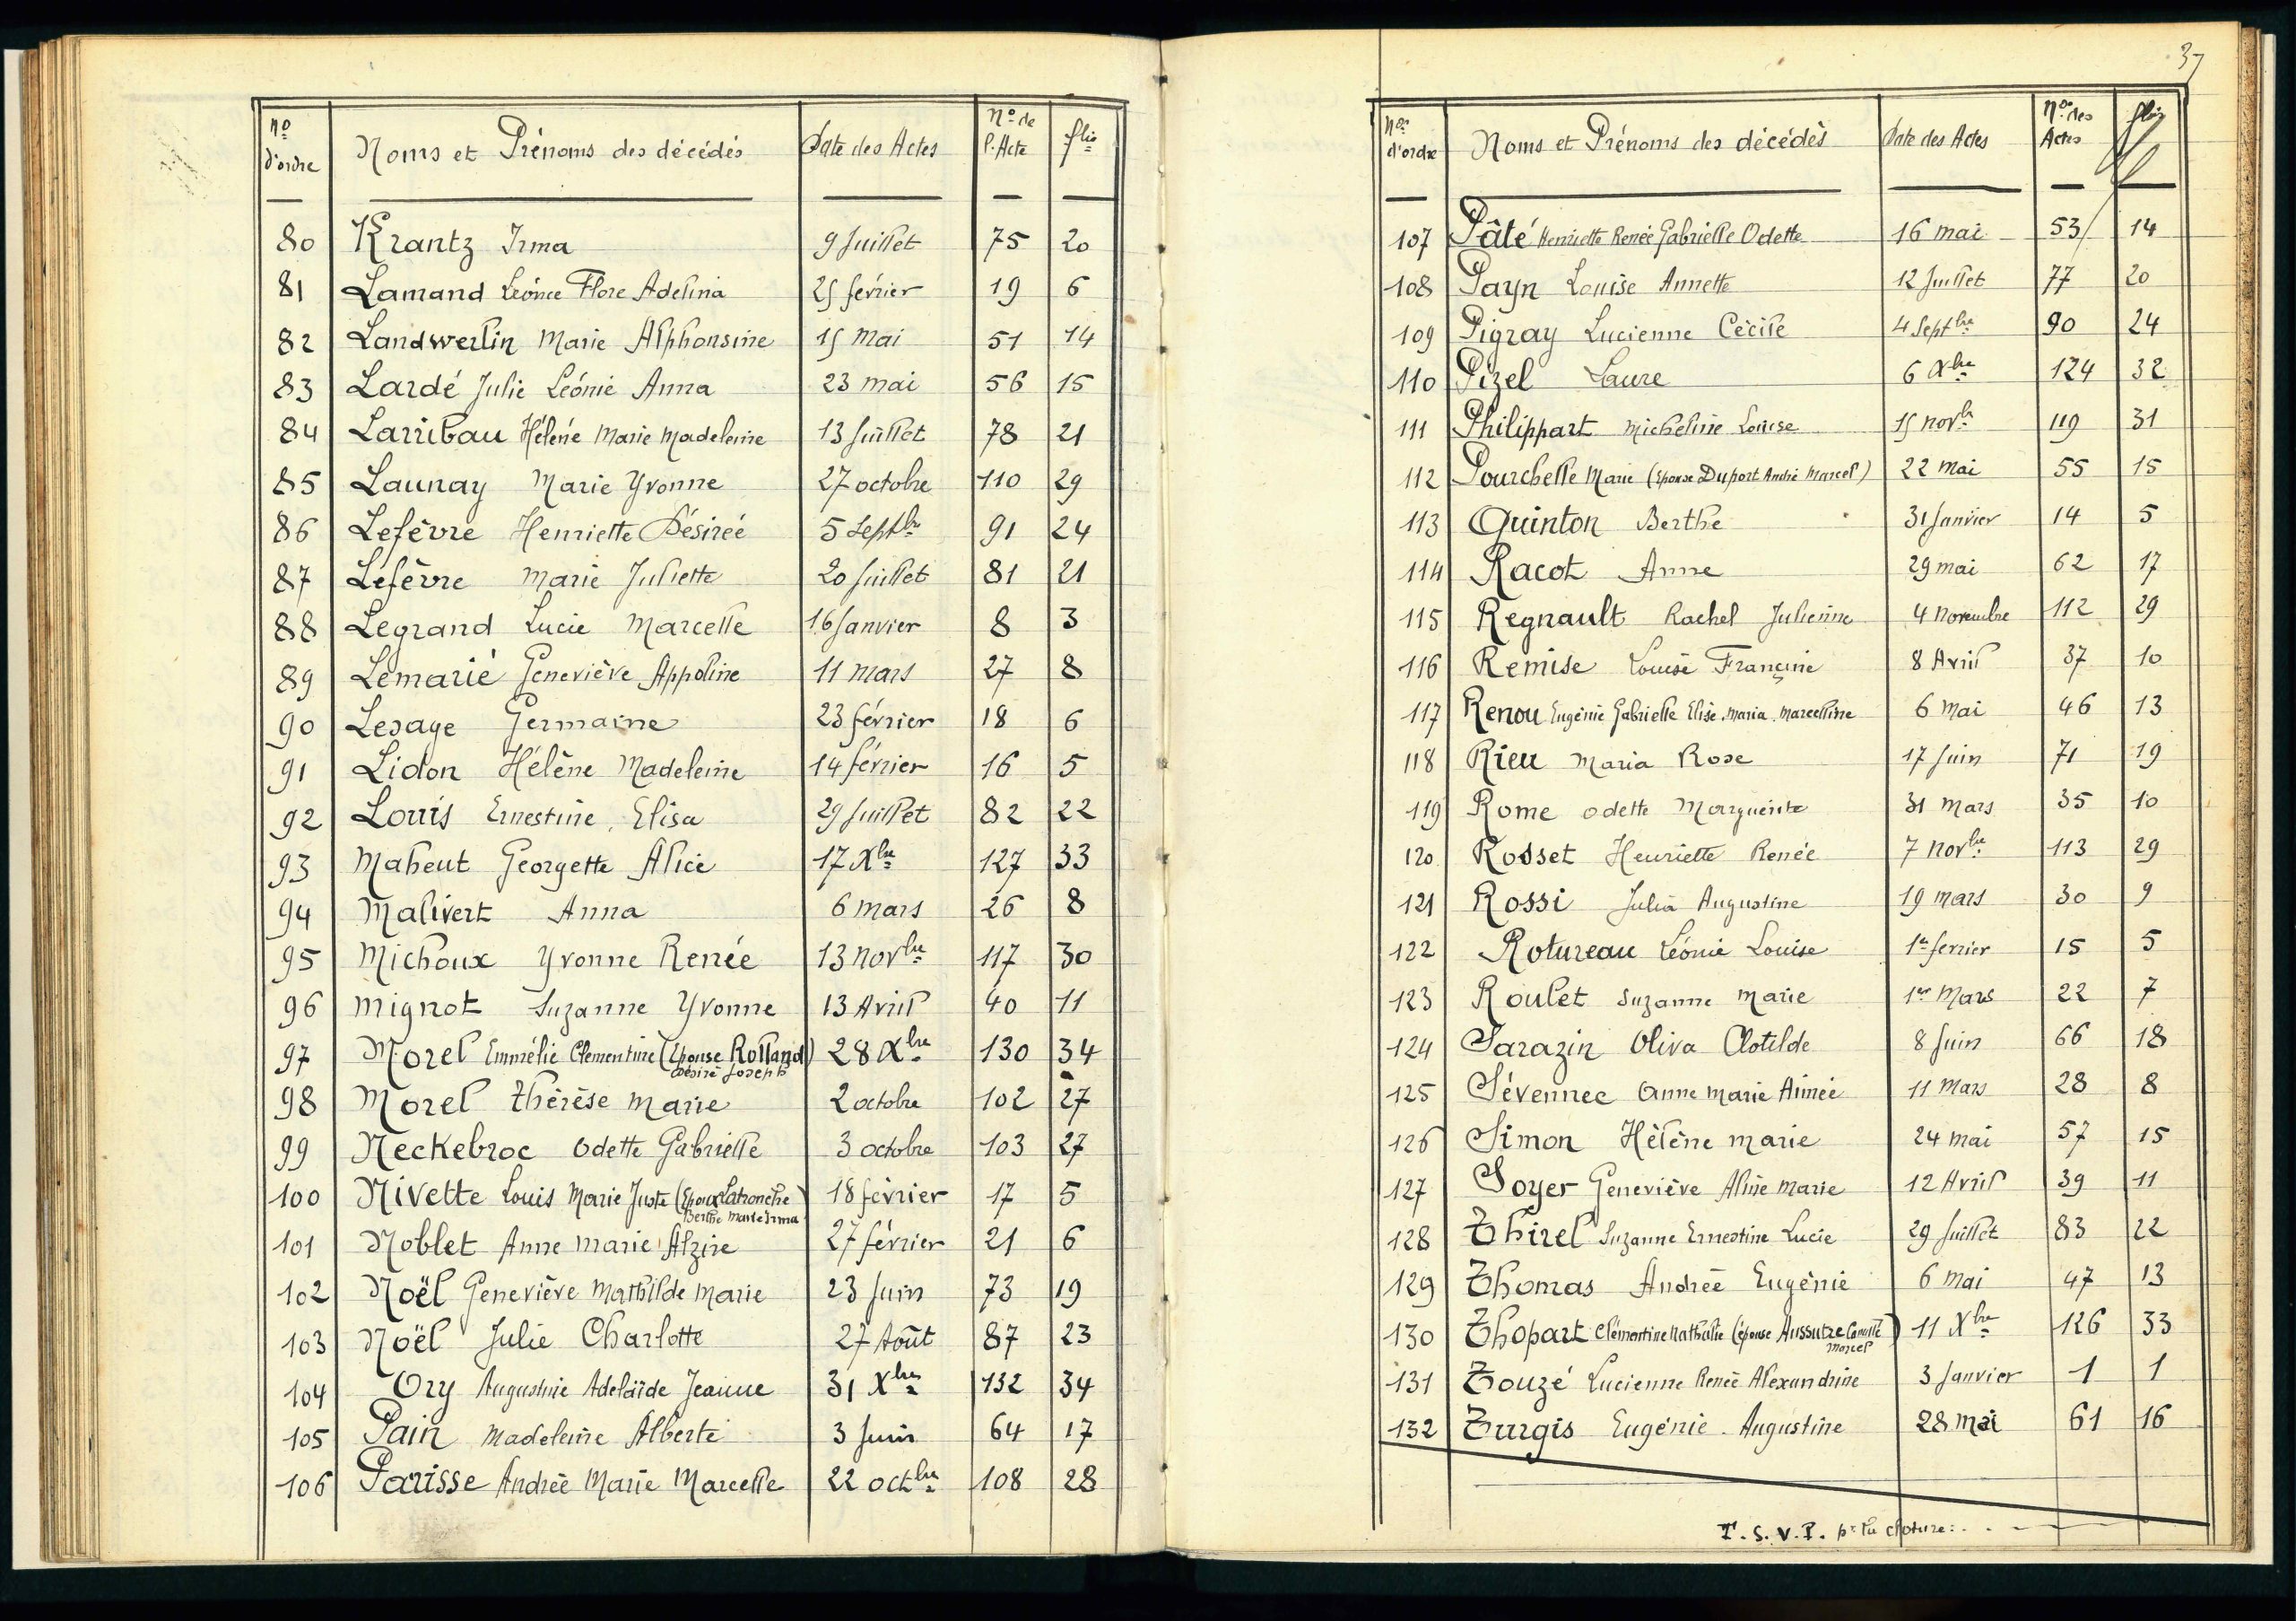 37
N° d'ordre Noms et Prénoms des décédés Date des Actes N° de l'Acte flio
80 Krantz Irma 9 Juillet 75 20
81 Lamand Léonce Flore Adelina 25 février 19 6
82 Landwerlin Marie Alphonsine 15 Mai 51 14
83 Lardé Julie Léonie Anna 23 mai 56 15
84 Larribau Hélène Marie Madeleine 13 Juillet 78 21
85 Launay Marie Yvonne 27 octobre 110 29
86 Lefèvre Henriette Désirée 5 Septbre 91 24
87 Lefèvre Marie Juliette 20 Juillet 81 21
88 Legrand Lucie Marcelle 16 Janvier 8 3
89 Lemarié Geneviève Appoline 11 mars 27 8
90 Lesage Germaine 23 février 18 6
91 Lidon Hélène Madeleine 14 février 16 5
92 Louis Ernestine Elisa 29 Juillet 82 22
93 Maheut Georgette Alice 17 Xbre 127 33
94 Malivert Anna 6 mars 26 8
95 Michoux Yvonne Renée 13 Novbre 117 30
96 Mignot Suzanne Yvonne 13 Avril 40 11
97 Morel Emmélie Clementine (Epouse Rolland 28 Xbre 130 34
Désiré Joseph)
98 Morel thérèse marie 2 octobre 102 27
99 Neckebroc Odette Gabrielle 3 octobre 103 27
100 Nivette Louis Marie Juste (Epoux Latronche 18 février 17 5
Berthe Marie Irma)
101 Noblet Anne marie Alzire 27 février 21 6
102 Noël Geneviève Mathilde Marie 23 Juin 73 19
103 Noël Julie Charlotte 27 Août 87 23
104 Ory Augustine Adelaïde Jeanne 31 Xbre 132 34
105 Pain Madeleine Alberte 3 Juin 64 17
106 Parisse Andrée Marie Marcelle 22 octbre 108 28
Nos d'ordre Noms et Prénoms des décédés Date des Actes Nos des Actes flios
107 Pâté Henriette Renée Gabrielle Odette 16 mai 53 14
108 Payn Louise Annette 12 Juillet 77 20
109 Pigray Lucienne Cécile 4 Septbre 90 24
110 Pizel Laure 6 Xbre 124 32
111 Philippart Micheline Louise 15 novb 119 31
112 Pourchelle Marie (Epouse Duport André Marcel) 22 mai 55 15
113 Quinton Berthe 31 Janvier 14 5
114 Racot Anne 29 mai 62 17
115 Regnault Rachel Julienne 4 Novembre 112 29
116 Remise Louise Françine 8 Avril 37 10
117 Renou Eugénie Gabrielle Elise Maria Marcelline 6 Mai 46 13
118 Rieu Maria Rose 17 Juin 71 19
119 Rome odette Marguerite 31 Mars 35 10
120 Rosset Henriette Renée 7 Novbre 113 29
121 Rossi Julia Augustine 19 mars 30 9
122 Rotureau Léonie Louise 1er fevrier 15 5
123 Roulet Suzanne Marie 1er Mars 22 7
124 Sarazin Oliva Clotilde 8 Juin 66 18
125 Sévennec Anne Marie Aimée 11 Mars 28 8
126 Simon Hélène marie 24 mai 57 15
127 Soyer Geneviève Aline Marie 12 Avril 39 11
128 Thirel Suzanne Ernestine Lucie 29 Juillet 83 22
129 Thomas Andrée Eugénie 6 Mai 47 13
130 Thopart Clémentine Nathalie (épouse Aussutre Camille 11 Xbre 126 33
Marcel)
131 Touzé Lucienne Renée Alexandrine 3 Janvier 1 1
132 Turgis Eugénie Augustine 28 Mai 61 16
T.S.V.P. pr la cloture: